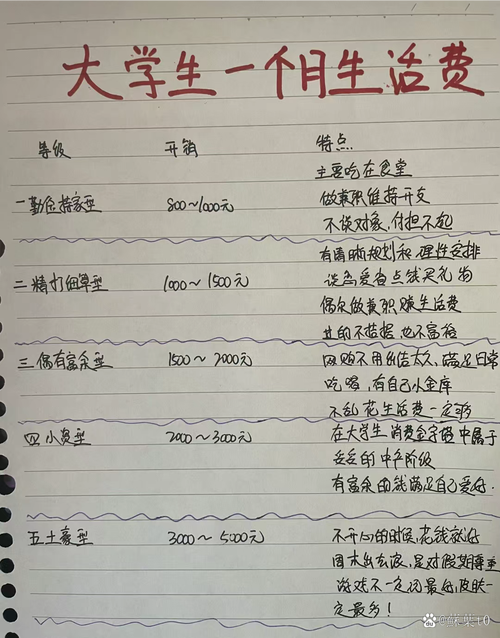 大学生一个月生活费
等级 开销 特点
主要吃在食堂
一勤俭持家型 800~1000元 做兼职维持开支
不谈对象，付担不起
有清晰规划和理性安排
二精打细算型 1000~1500元 谈恋爱省点钱买礼物
偶尔做兼职赚生活费
过的不拮据也不富裕
三偶有富余型 1500~2000元 网购不用纠结太久，满足日常
吃喝，有自己小金库
不乱花生活费一定够
四小资型 2000~3000元 在大学生消费金字塔中属于
妥妥的中产阶级
有富余的钱满足自己爱好.
五土豪型 3000~5000元 不开心的时候，花钱就好
周末出去浪，是对假期尊重
游戏不一定玩最好，皮肤一
定最多！